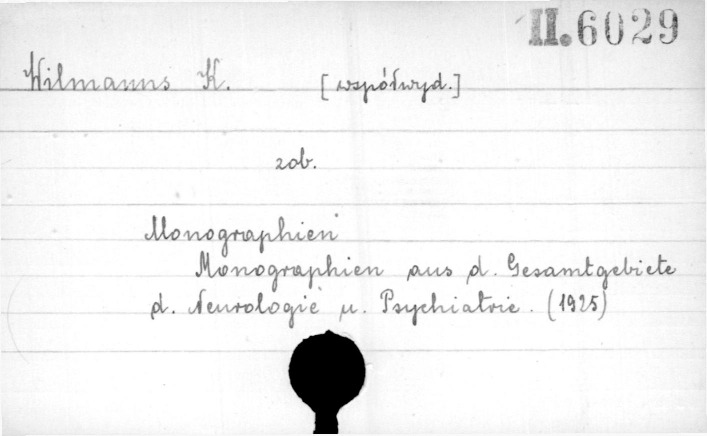 II.6029
Wilmanns K. [współwyd.]
zob.
Monographien
Monographien aus d. Gesamtgebiete
d. Neurologie u. Psychiatrie. (1925)